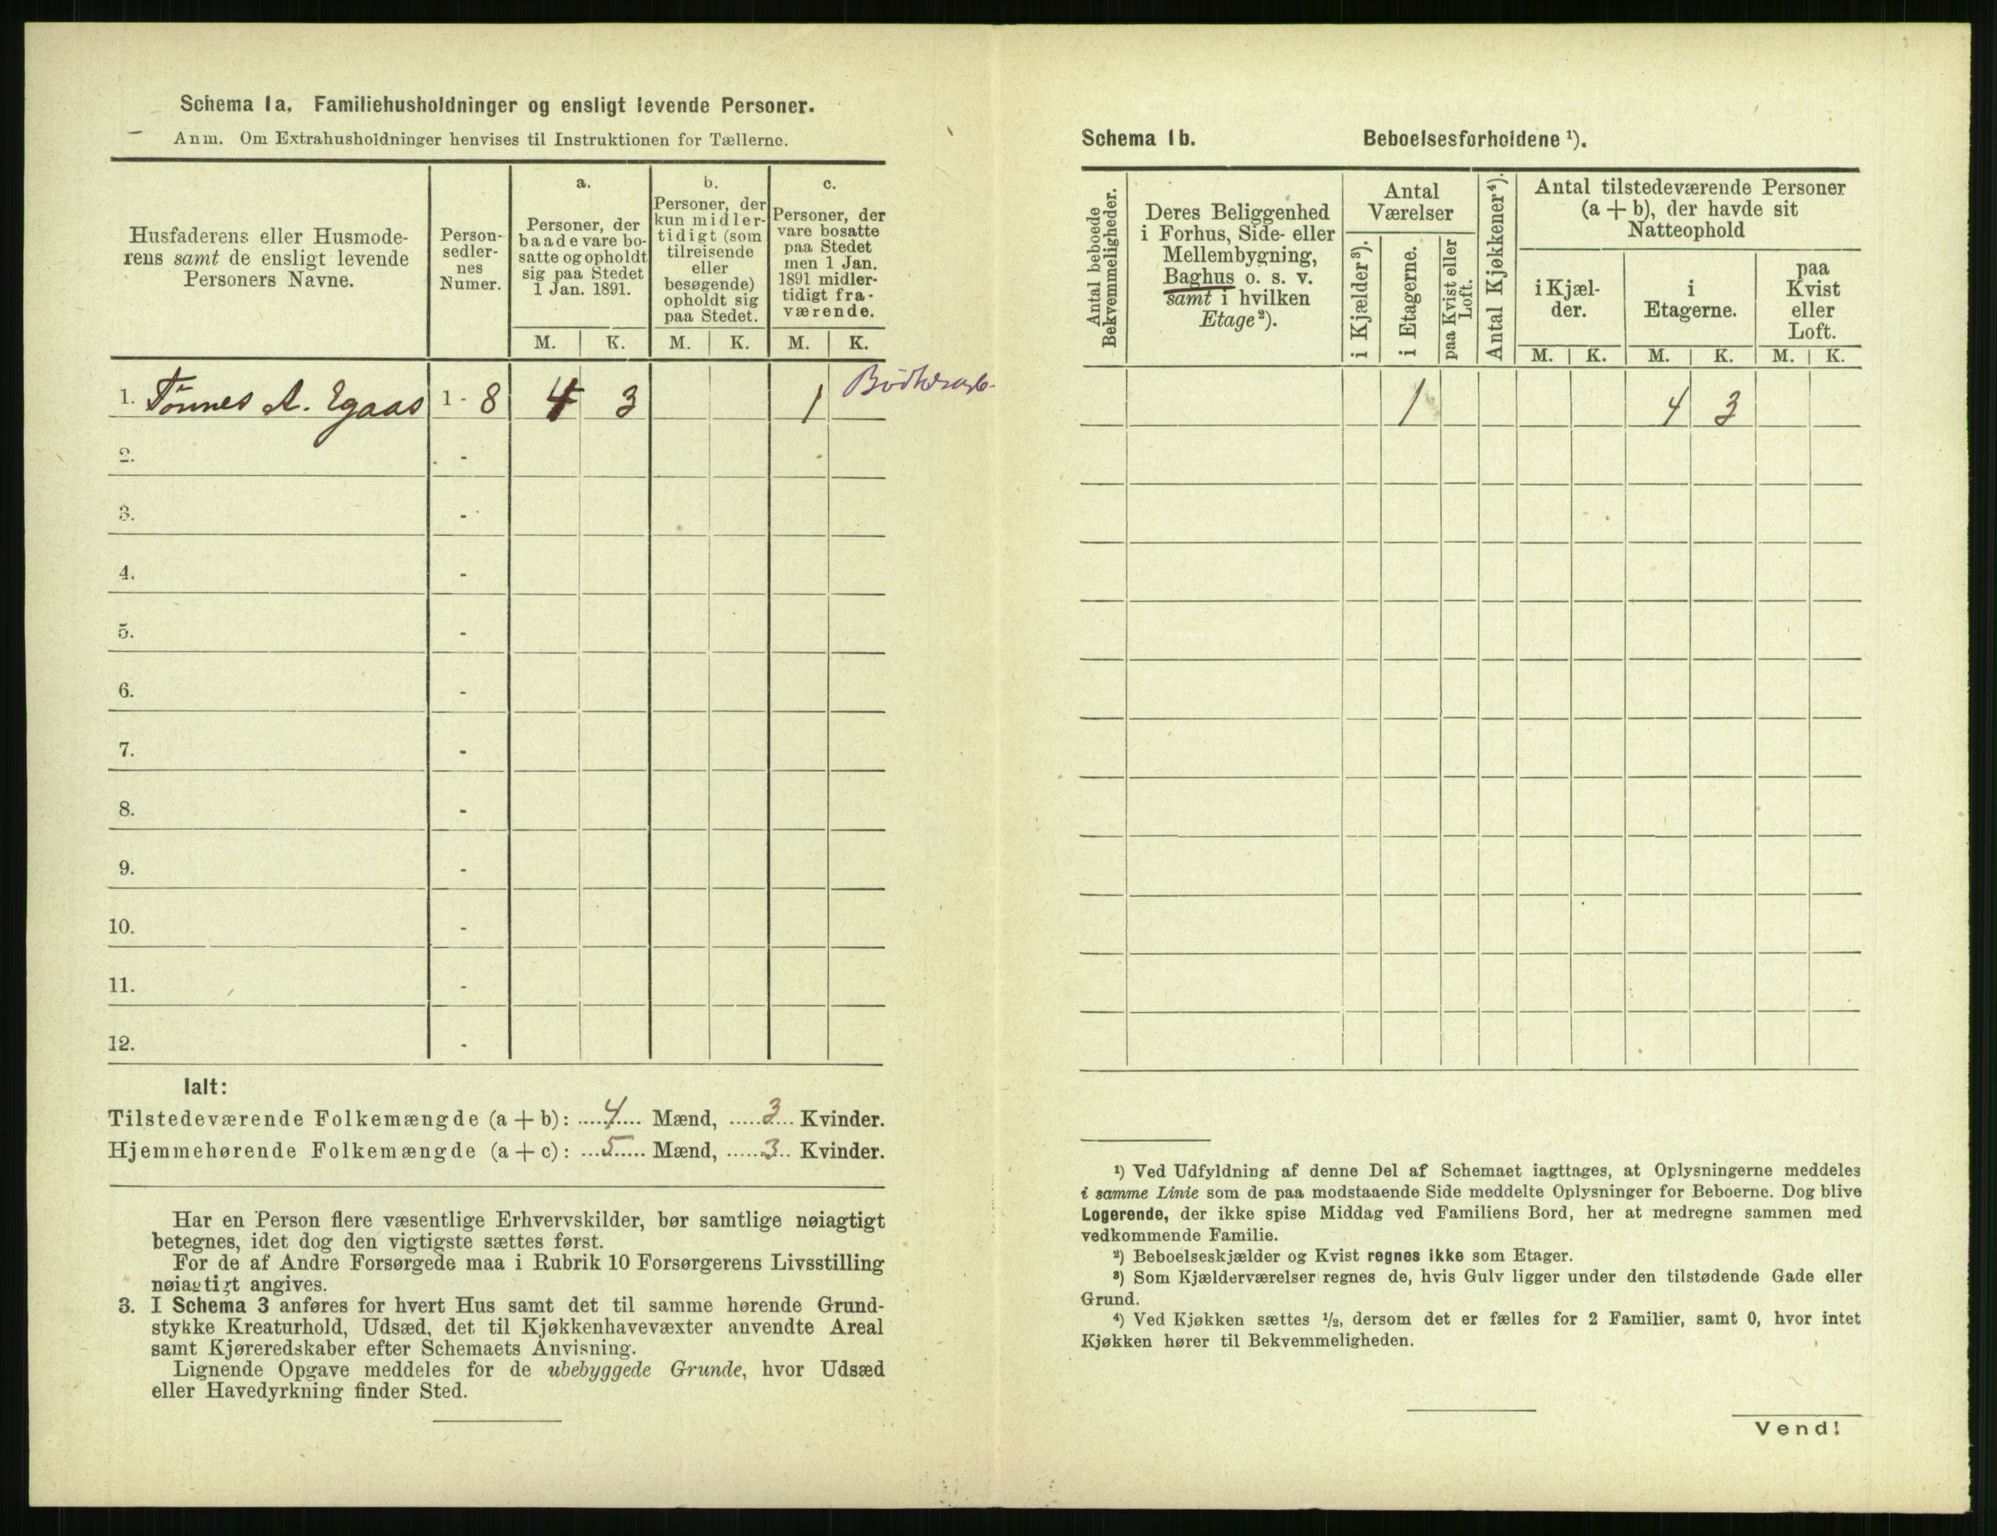 Schema 1a. Familiehusholdninger og ensligt levende Personer.
Anm. Om Extrahusholdninger henvises til Instruktionen for Tællerne.
Husfaderens eller Husmode-
rens samt de ensligt levende
Personers Navne.
Person-
sedler-
nes
Numer.
a.
Personer, der
baade vare bo-
satte og opholdt
sig paa Stedet
1 Jan. 1891.
b.
Personer, der
kun midler-
tidigt (som
tilreisende
eller
besøgende)
opholdt sig
paa Stedet.
c.
Personer, der
vare bosatte
paa Stedet
men 1 Jan.
1891 midler-
tidigt fra-
værende.
M. K. M. K. M. K.
1. Tønnes A. Egaas 1 - 8 4 3 1
2. -
3. -
4. -
5. -
6. -
7. -
8. -
9. -
10. -
11. -
12. -
Ialt:
Tilstedeværende Folkemængde (a + b): 4 Mænd, 3 Kvinder.
Hjemmehørende Folkemængde (a + c): 5 Mænd, 3 Kvinder.
Har en Person flere væsentlige Erhvervskilder, bør samtlige nøiagtigt
betegnes, idet dog den vigtigste sættes først.
For de af Andre Forsørgede maa i Rubrik 10 Forsørgerens Livsstilling
nøiagtigt angives.
3. I Schema 3 anføres for hvert Hus samt det til samme hørende Grund-
stykke Kreaturhold, Udsæd, det til Kjøkkenhavevæxter anvendte Areal
samt Kjøreredskaber efter Schemaets Anvisning.
Lignende Opgave meddeles for de ubebyggede Grunde, hvor Udsæd
eller Havedyrkning finder Sted.
Schema 1b. Beboelsesforholdene ¹).
Antal beboede
Bekvemmeligheder.
Deres Beliggenhed
i Forhus, Side- eller
Mellembygning,
Baghus o. s. v.
samt i hvilken
Etage²).
Antal
Værelser
i Kjælder³).
i Etagerne.
paa Kvist eller
Loft.
Antal Kjøkkener⁴).
Antal tilstedeværende Personer
(a + b), der havde sit
Natteophold
i Kjæl-
der.
i
Etagerne.
paa
Kvist
eller
Loft.
M. K. M. K. M. K.
1 4 3
¹) Ved Udfyldning af denne Del af Schemaet iagttages, at Oplysningerne meddeles
i samme Linie som de paa modstaaende Side meddelte Oplysninger for Beboerne. Dog blive
Logerende, der ikke spise Middag ved Familiens Bord, her at medregne sammen med
vedkommende Familie.
²) Beboelseskjælder og Kvist regnes ikke som Etager.
³) Som Kjælderværelser regnes de, hvis Gulv ligger under den tilstødende Gade eller
Grund.
⁴) Ved Kjøkken sættes ½, dersom det er fælles for 2 Familier, samt 0, hvor intet
Kjøkken hører til Bekvemmeligheden.
Vend!